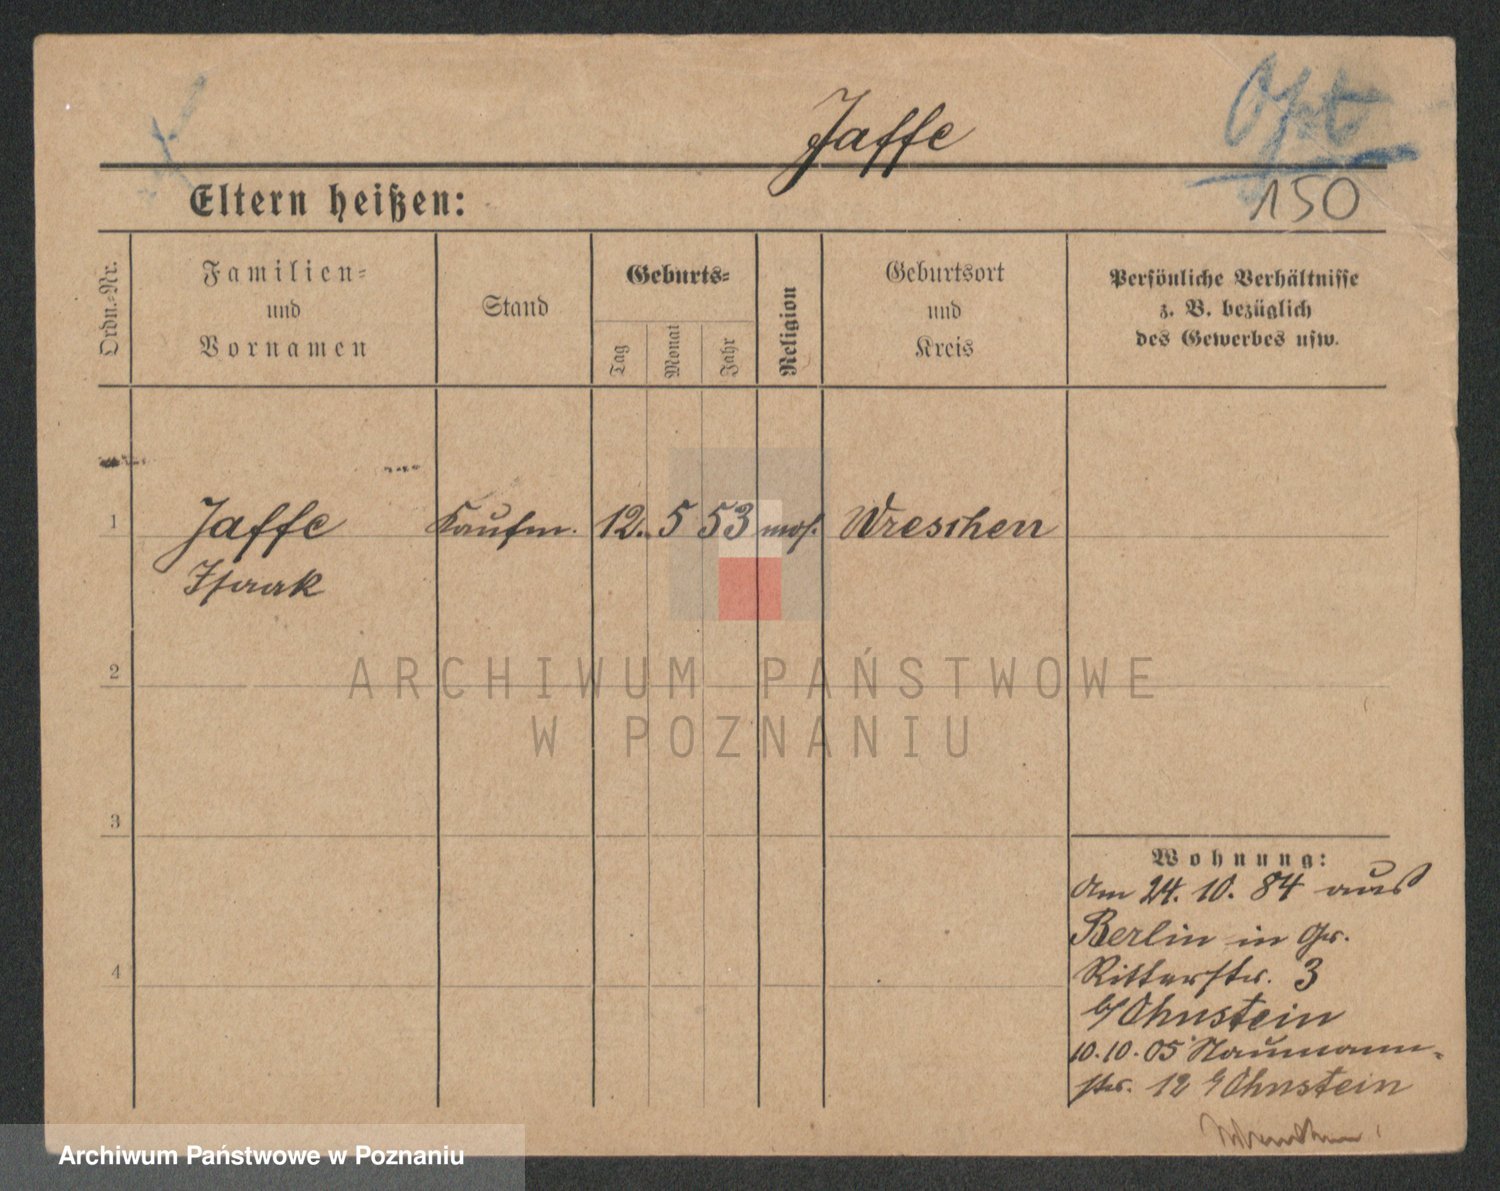 Jaffe
Opt
150
Eltern heißen:
Ordn.-Nr.
Familien-
und
Vornamen
Stand
Geburts-
Tag
Monat
Jahr
Religion
Geburtsort
und
Kreis
Persönliche Verhältnisse
z. B. bezüglich
des Gewerbes usw.
1 Jaffe Kaufm. 12. 5 53 mos. Wreschen
Isaak
2
3
4
Wohnung:
Am 24. 10. 84 aus
Berlin in Gr.
Ritterstr. 3
b/ Ohnstein
10.10.05 Naumann-
str. 12 b/ Ohnstein
ARCHIWUM PAŃSTWOWE
W POZNANIU
Archiwum Państwowe w Poznaniu